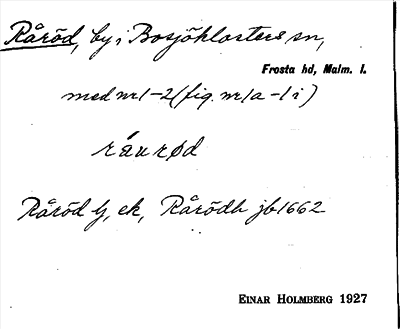 Råröd, by i Bosjöklosters sn,
Frosta hd, Malm. l.
med nr 1-2 (fig. nr 1a - 1i)
ráurød
Råröd by, ek, Rårödh jb 1662
EINAR HOLMBERG 1927